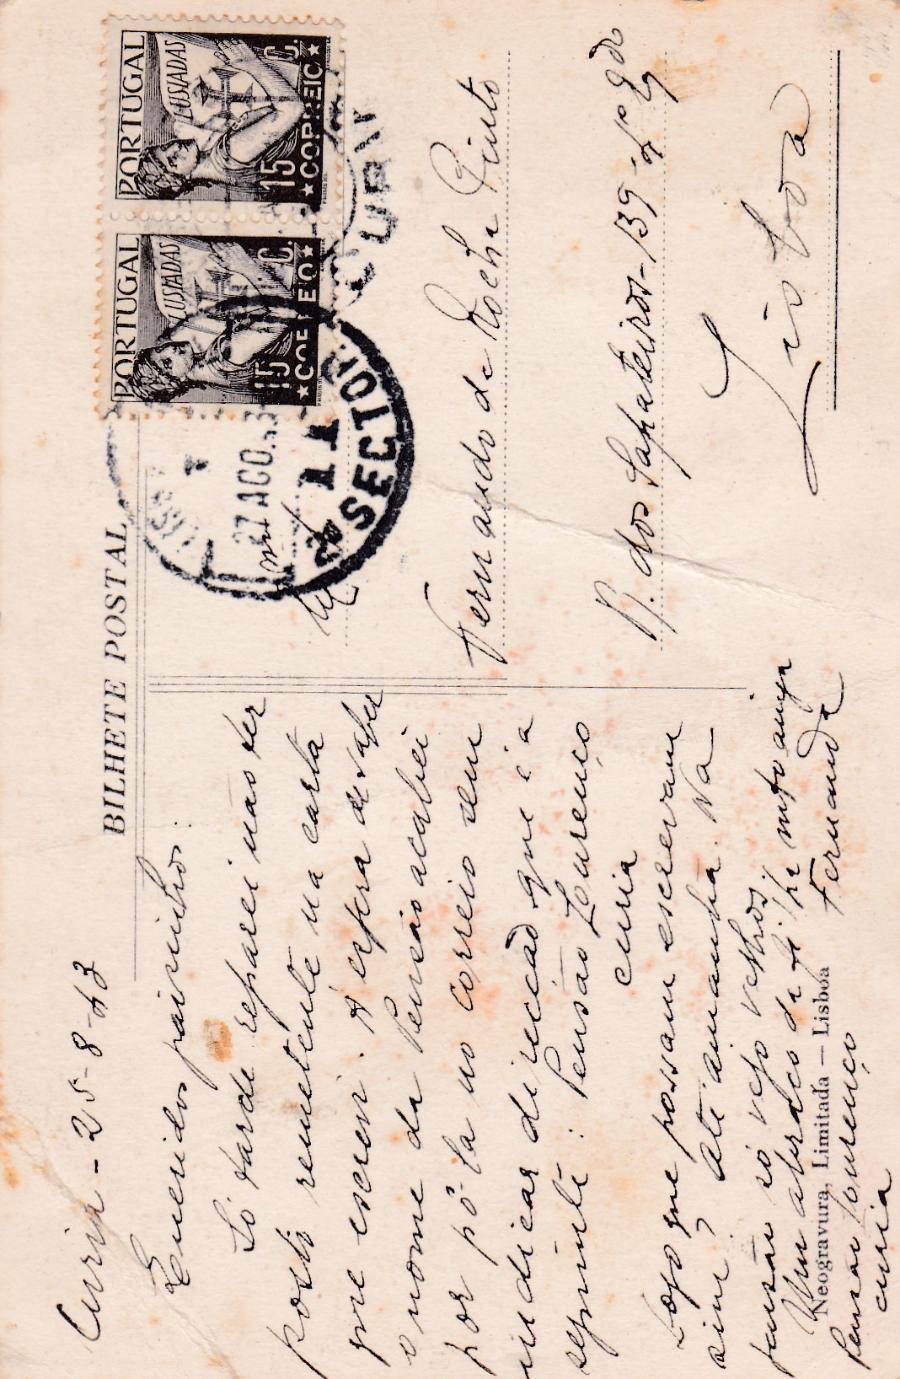 BILHETE POSTAL
Curia - 25-8-43
Queridos paizinhos:
Só tarde reparei não ter
posto remetente na carta
que escrevi. À espera de saber
o nome da Pensão acabei
por pô-la no correio sem
indicar direcção que é a
seguinte: Pensão Lourenço
Curia
Logo que possam escrevam
sim? Até amanhã. Na
pensão só vejo velhos!
Um abraço da filha mto amiga
Fernanda
Pensão Lourenço
Curia
Neogravura, Limitada — Lisboa
PORTUGAL
LUSIADAS
15 C.
CORREIO
PORTUGAL
LUSIADAS
15 C.
CORREIO
CURIA
27 AGO.43
11
2º SECTOR
Fernando da Rocha Pinto
R. dos Sapateiros-139-4º Edo
Lisboa